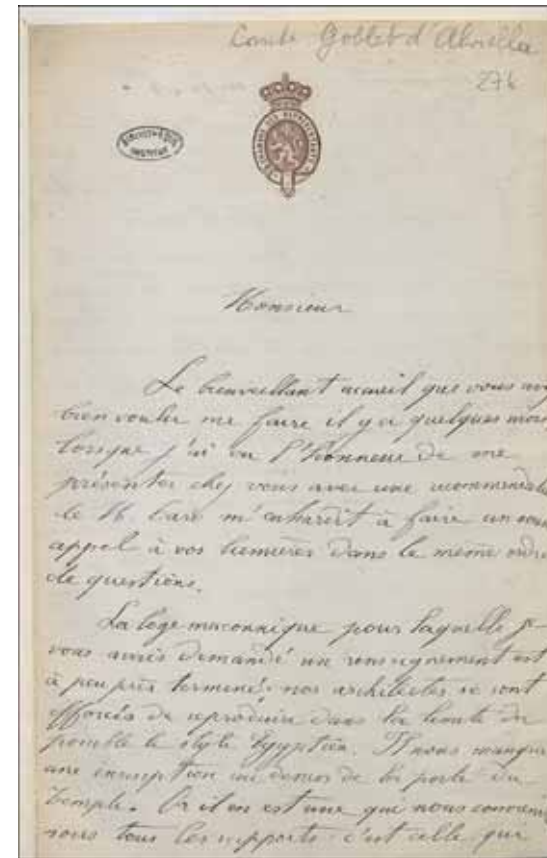 Comte Goblet d'Alviella
276
CHAMBRE DES REPRÉSENTANTS
Monsieur
Le bienveillant accueil que vous av
bien voulu me faire il y a quelques mois
lorsque j'ai eu l'honneur de me
présenter chez vous avec une recommanda
de M. m'enhardit à faire un nouv
appel à vos lumières dans le même ordre
de questions.
La loge maconnique pour laquelle je
vous avais demandé un renseignement est
à peu près terminée; nos architectes se sont
efforcés de reproduire dans la limite du
possible le style Egyptien. Il nous manque
une inscription au dessus de la porte du
Temple. Or il en est une qui nous convien
sous tous les rapports: c'est celle que